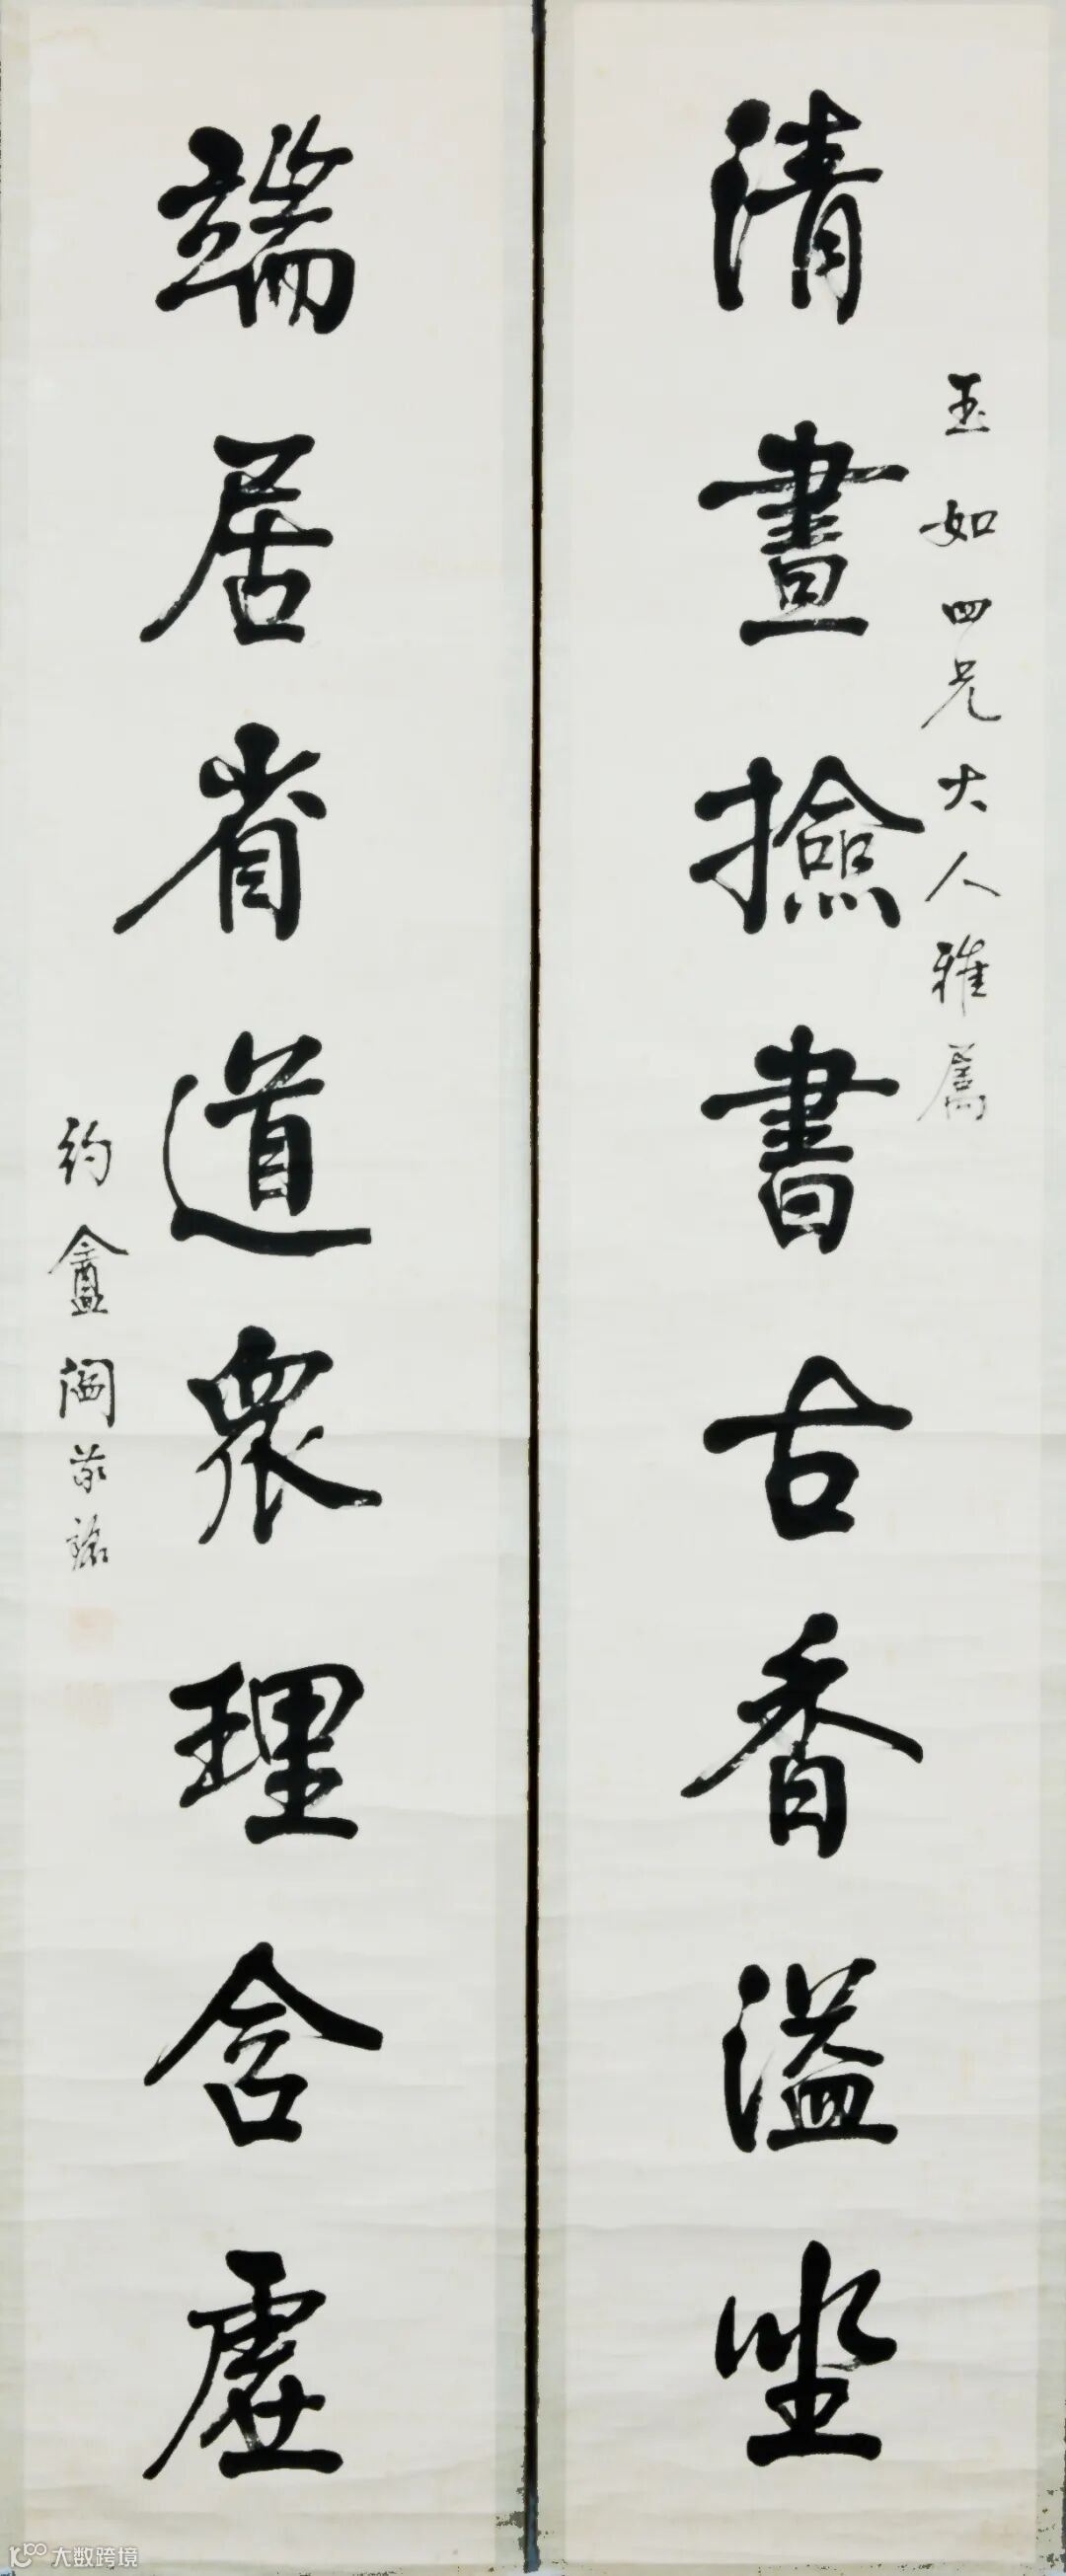 清晝撿書古香溢坐
玉如四兄大人雅屬
端居省道眾理含虛
約盦閻敬銘
大数跨境